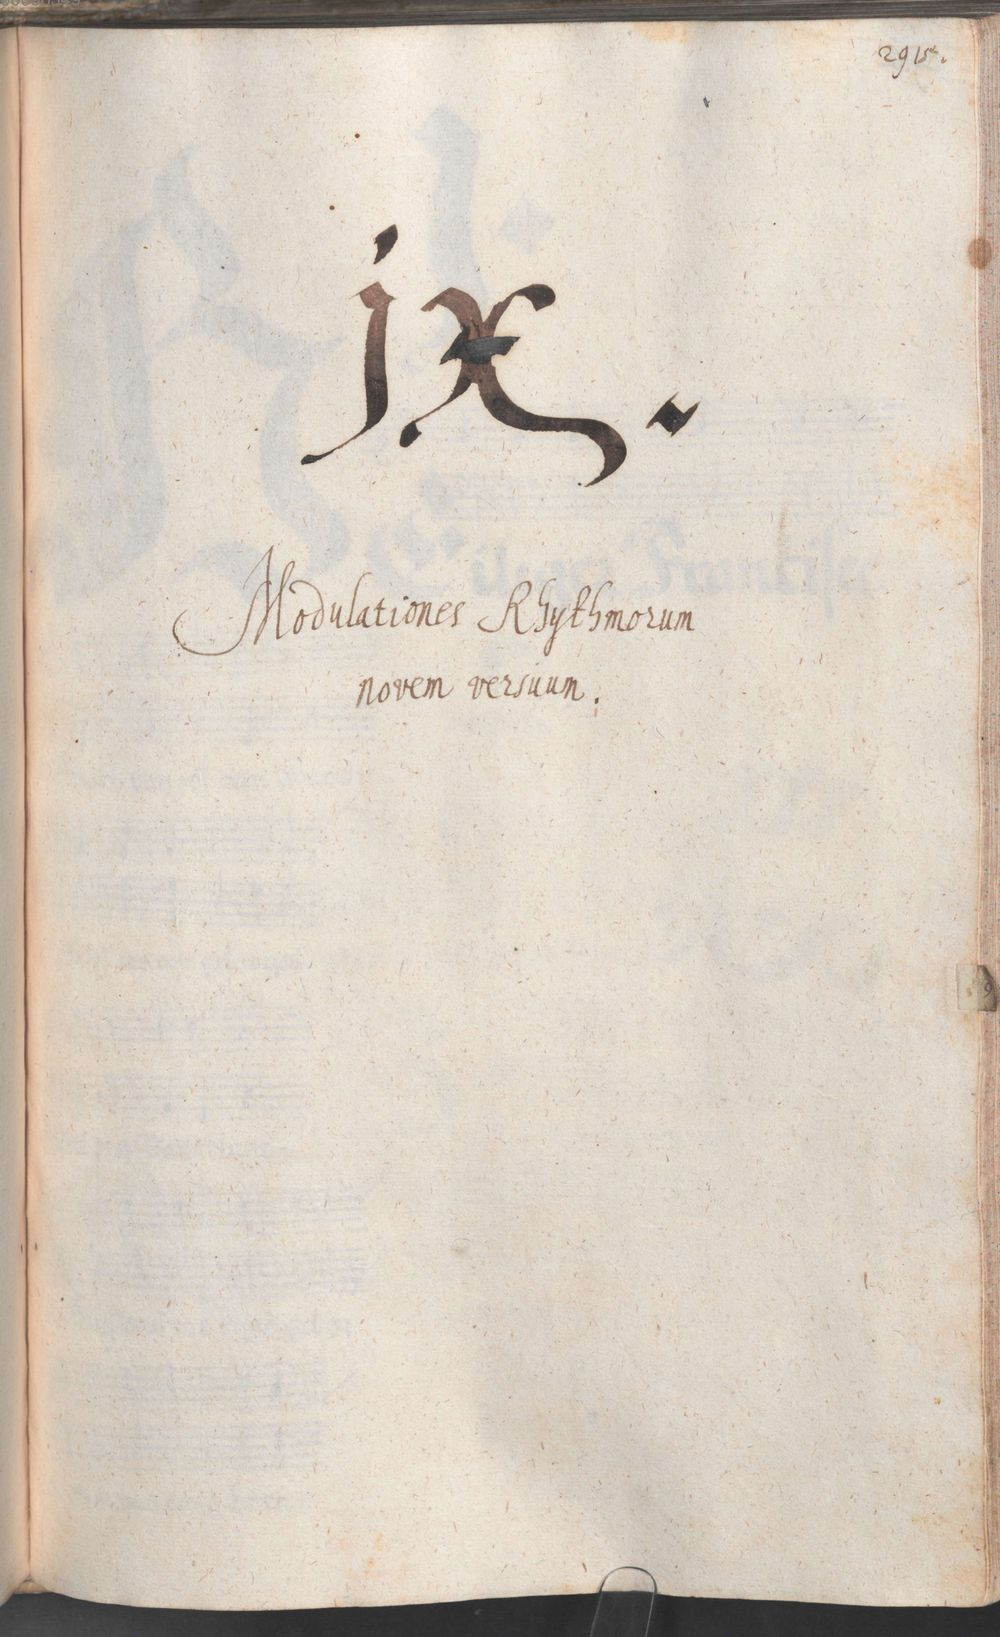 2915.
jx.
Modulationes Rhythmorum
novem versuum.
9